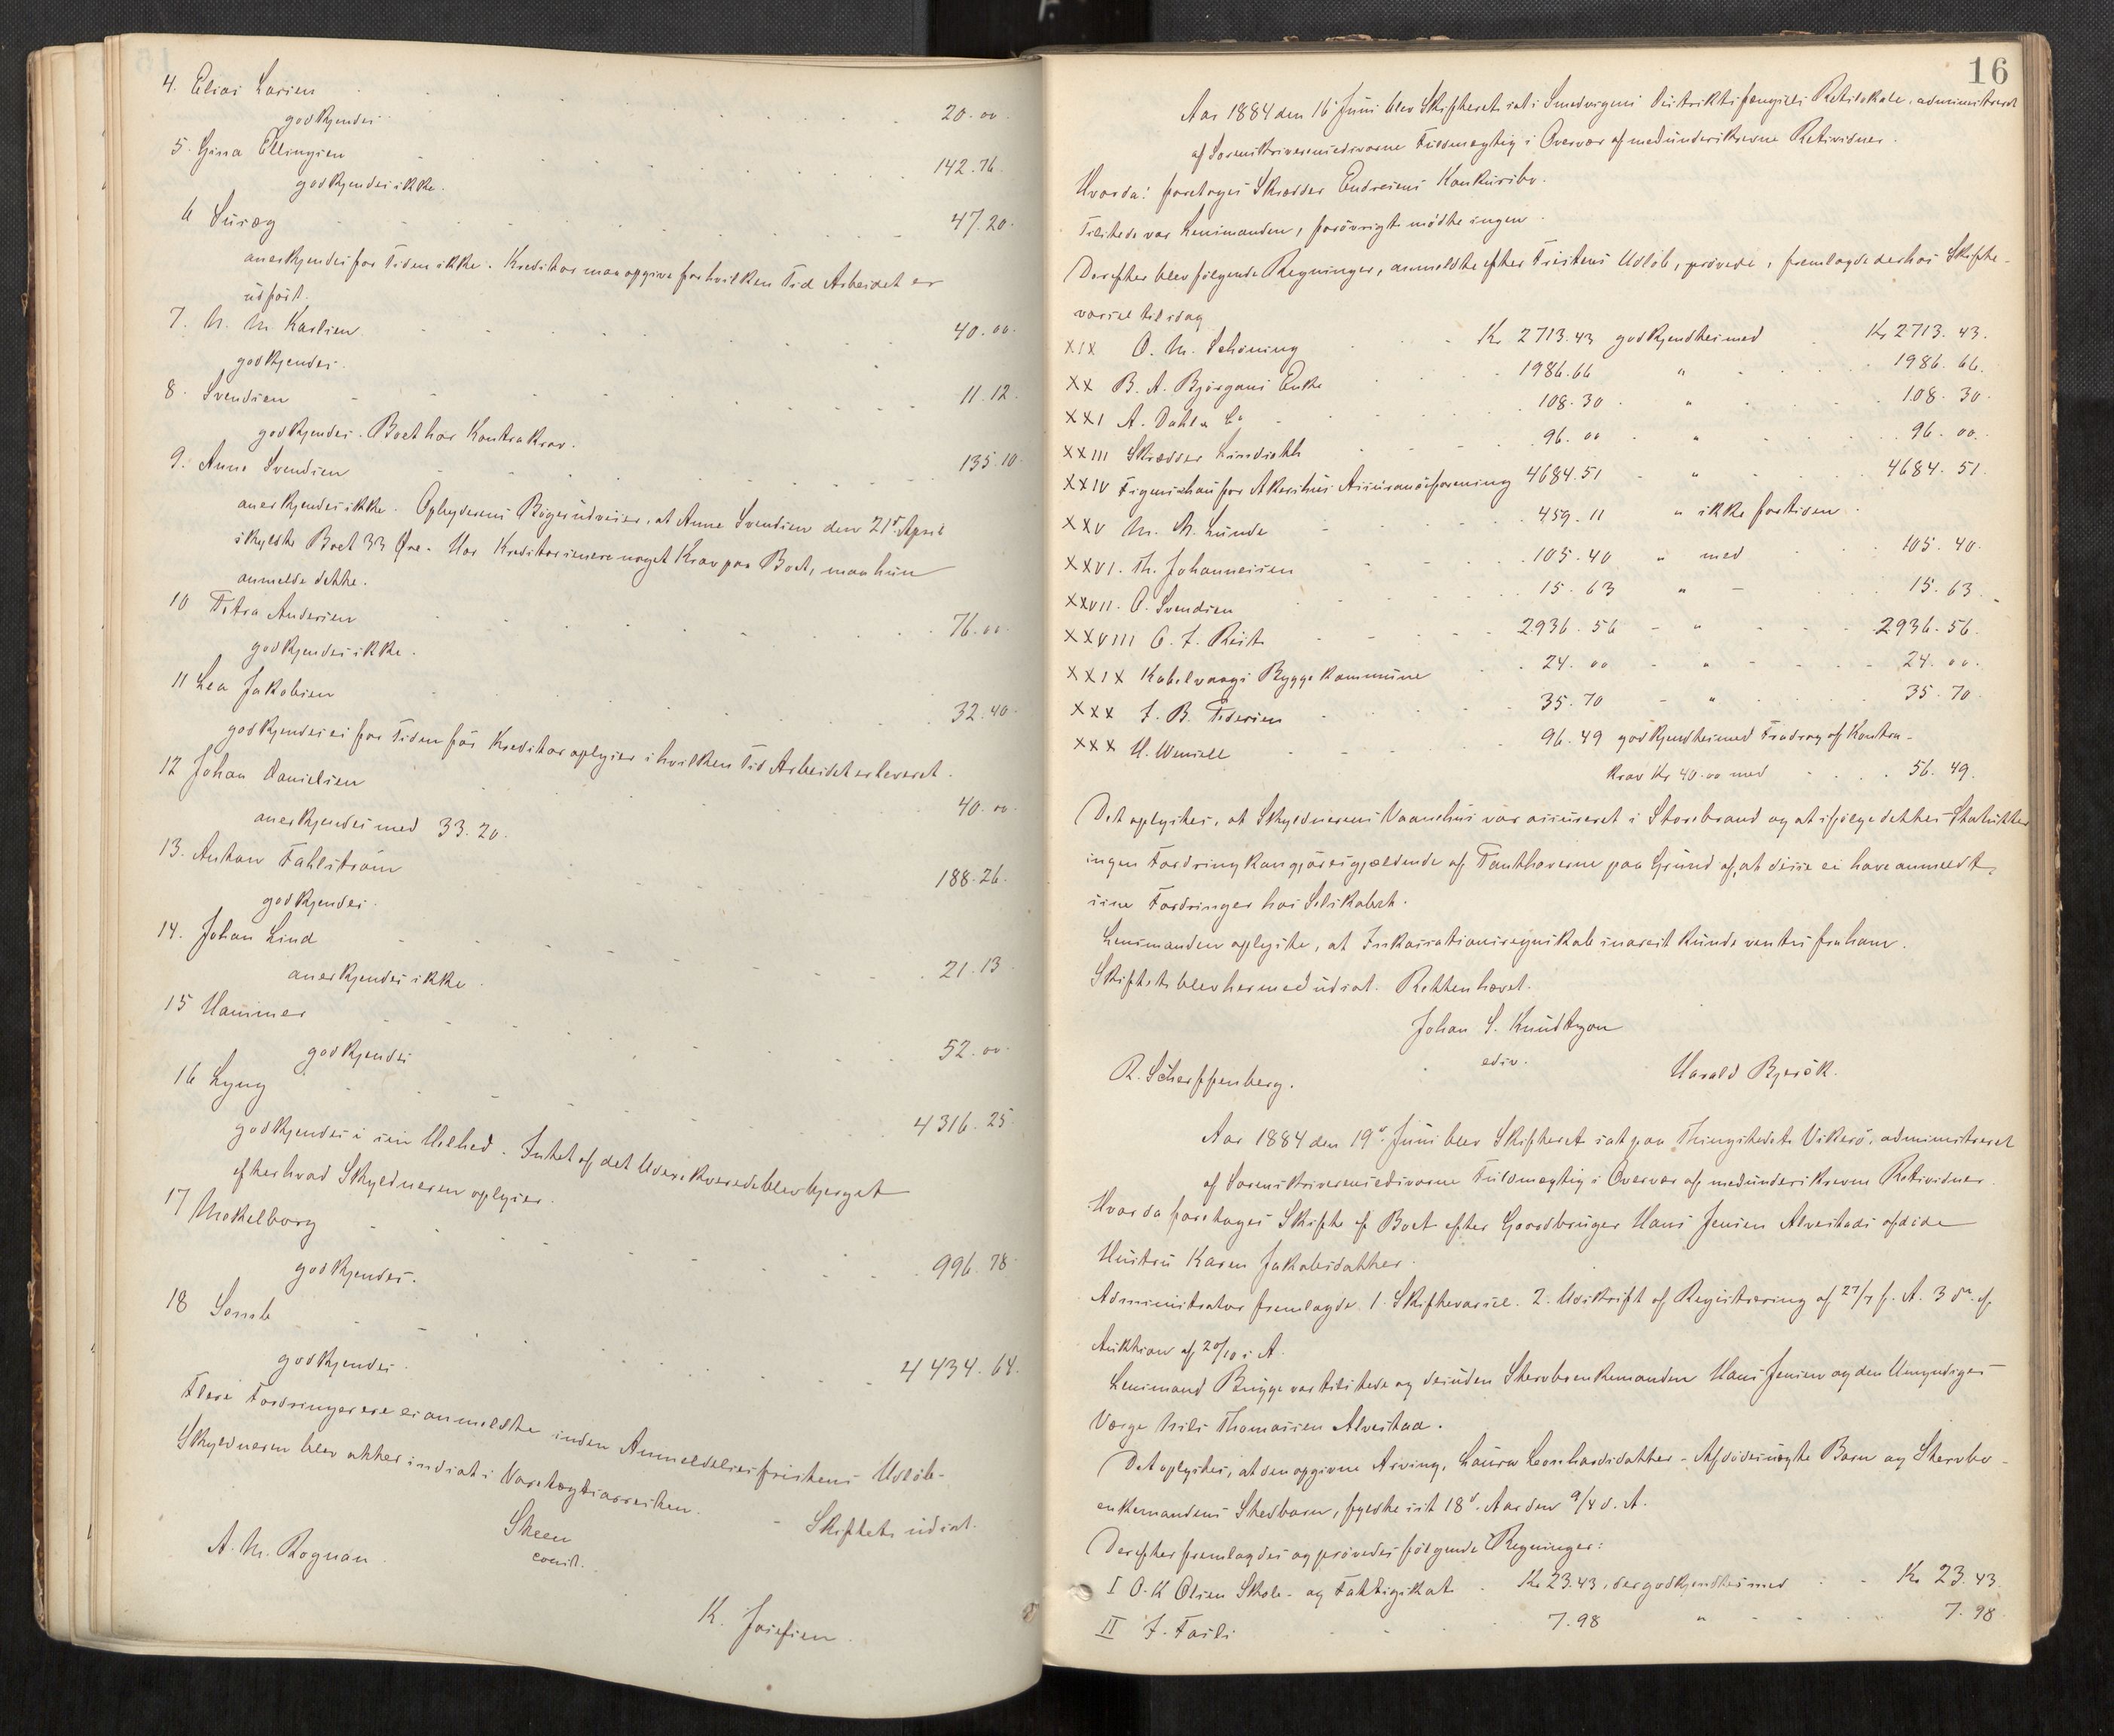 4. Elias Larsen . . . 20.00
godkjendes
5. Gina Ellingsen . . . 142.76.
godkjendes ikke.
6 Suræg . . . 47.20.
anerkjendes for Tiden ikke. Kreditor maa opgive for hvilken Tid Arbeidet er
udført.
7. N. M. Karlsen . . . 40.00.
godkjendes.
8. Svendsen . . . 11.12.
godkjendes. Boet har Kontrakrav.
9. Anne Svendsen . . . 135.10.
anerkjendes ikke. Opbyderens Bøger udviser, at Anne Svendsen den 21de April
skyldte Boet 33 Øre. Har Kreditor senere noget Krav paa Boet, maa hun
anmelde dette.
10 Petra Andersen . . . 76.00.
godkjendes ikke.
11 Lea Jakobsen . . . 32.40.
godkjendes ei for Tiden før Kreditor oplyser i hvilken Tid Arbeidet er leveret.
12 Johan Danielsen . . . 40.00.
anerkjendes med 33.20.
13. Anton Fahlstrøm . . . 188.26.
godkjendes.
14. Johan Lind . . . 21.13
anerkjendes ikke.
15 Hammer . . . 52.00.
godkjendes
16 Lyng . . . 4316.25.
godkjendes i sin Helhed. Intet af det blev bjerget
efter hvad Skyldneren oplyser.
17 Mokelborg . . . 996.78.
godkjendes.
18 Somb . . . 4434.64.
godkjendes.
Flere Fordringer ere ei anmeldte inden Anmeldelsesfristens Udløb.
Skyldneren blev atter indsat i Varetægtsarresten. - Skiftet udsat.
Skeen
const.
A. M. Rognan.
K. Josefsen.
16
Aar 1884 den 16 Juni blev Skifteret sat i Smedvigens Distriktsfængsels Retslokale, administreret
af Sorenskriverens edsvorne Fuldmægtig i Overvær af medunderskrevne Retsvidner.
Hvorda: foretoges Skrædder Endresens Konkursbo.
Tilstede var Lensmanden, forøvrigt mødte ingen.
Derefter blev følgende Regninger, anmeldte efter Fristens Udløb, prøvede, fremlagde derhos Skifte-
varsel til idag
XIX O. M. Schøning . . . Kr 2713.43 godkjendtes med . Kr 2713.43.
XX B. A. Bjørgans Enke . . . 1986.66 " . . . 1986.66.
XXI A. Dahl & Co . . . 108.30 . " . . . 108.30.
XXIII Skrædder Lindseth . . . 96.00 . " . . . 96.00.
XXIV Tigerschou for Akershus Assuranceforening 4684.51 - " . . . 4684.51.
XXV M. A. Lunde . . . 459.11 " ikke for tiden.
XXVI. Th. Johannesen . . . 105.40 " med . . . 105.40.
XXVII. O. Svendsen . . . 15.63 " - . . . 15.63.
XXVIII C. F. Reist . . . 2936.56 - " . . . 2936.56.
XXIX Kabelvaags Byggekommune . . 24.00 - " . . . 24.00.
XXX J. B. Pedersen . . . 35.70 - " . . . 35.70.
XXX H. Wensell . . . 96.49 godkjendtes med Fradrag af Kontra-
krav Kr 40.00 med . . . 56.49.
Det oplystes, at Skyldnerens Vaanehus var assureret i Storebrand og at ifølge dettes Statutter
ingen Fordring kan gjøres gjældende af Panthaverne paa Grund af, at disse ei have anmeldt
sine Fordringer hos Selskabet.
Lensmanden oplyste, at Inkassationsregnskab snarest kunde ventes fra ham.
Skiftet blev hermed udsat. Retten hævet.
Johan S. Knudtzon
edsv.
R. Scherffenberg. Harald Bjerök.
Aar 1884 den 19de Juni blev Skifteret sat paa Thingstedet Vikerö, administreret
af Sorenskriverens edsvorne Fuldmægtig i Overvær af medunderskrevne Retsvidner.
Hvorda foretoges Skifte af Boet efter Gaardbruger Hans Jensen Alvestads afdøde
Hustru Karen Jakobsdatter.
Administrator fremlagde. 1. Skiftevarsel. 2. Udskrift af Registrering af 27/9 f. A. 3 do. af
Auktion af 20/10 s. A.
Lensmand Brygge var tilstede og desuden Stervboenkemanden Hans Jensen og den Umyndiges
Værge Nils Thomassen Alvestad.
Det oplystes, at den opgivne Arving, Laura Leonhardsdatter - Afdødes uægte Barn og Stervbo-
enkemandens Stedbarn, fyldte sit 18de Aar den 9/4 d. A.
Derefter fremlagdes og prøvedes følgende Regninger:
I O. K Olsen Skole- og Fattigskat . Kr 23.43, der godkjendtes med . - Kr 23.43.
II J. Fasli . . . 7.98 " . . . 7.98